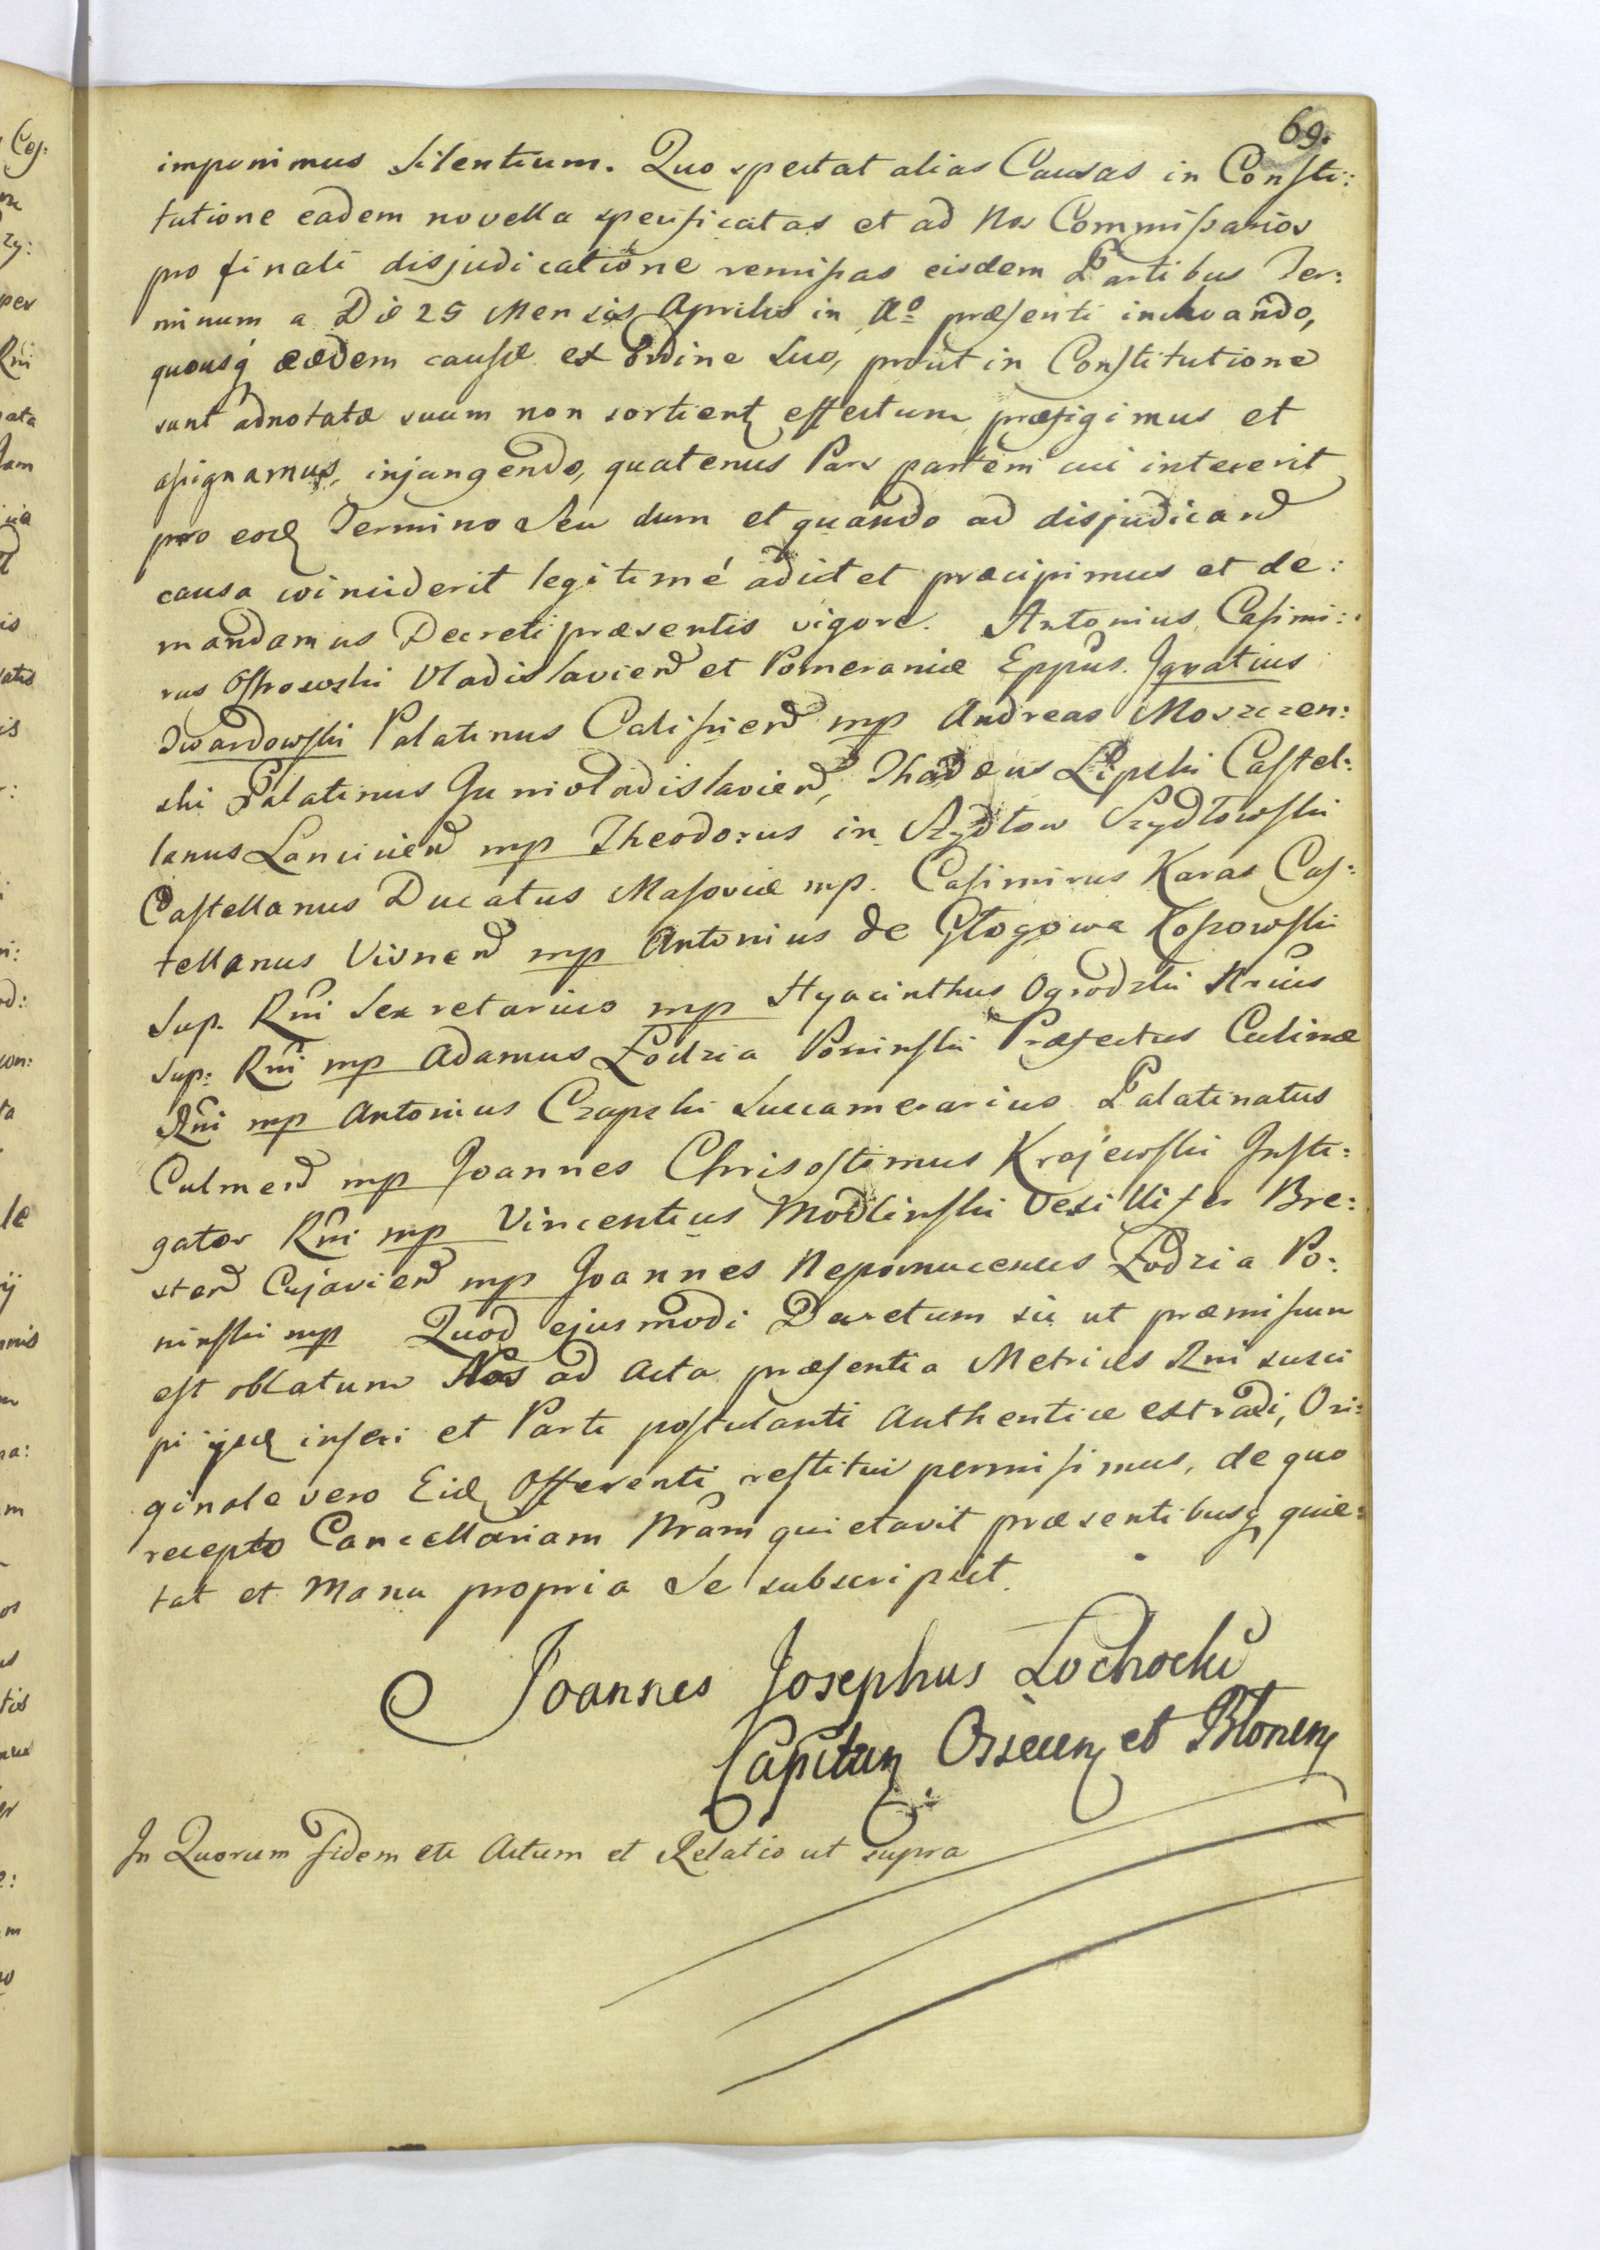 69.
imponimus Silentium. Quo spectat alias Causas in Consti:
tutione eadem novella specificatas et ad Nos Commissarios
pro finali disjudicatione remissas eisdem Partibus Ter:
minum a Die 25 Mensis Aprilis in Ao praesenti inchoando,
quousq eaedem causae ex Ordine Suo, prout in Constitutione
sunt adnotatae suum non sortient effectum praefigimus et
assignamus, injungendo, quatenus Pars partem cui intererit
pro eod Termino Seu dum et quando ad disjudicand
causa coinciderit legitimé adcitet praecipimus et de:
mandamus Decreti praesentis vigore. Antonius Casimi:
rus Ostrowski Vladislavien et Pomeraniae Eppus. Ignatius
Twardowski Palatinus Calissien mp Andreas Moszczen:
ski Palatinus Junivladislavien, Thadaeus Lipski Castel:
lanus Lancicien mp Theodorus in Szydłow Szydłowski
Castellanus Ducatus Masoviae mp. Casimirus Karas Cas:
tellanus Visnen mp Antonius de Głogowa Kossowski
Sup. Rni Secretarius mp Hyacinthus Ogrodzki Nrius
Sup: Rni mp Adamus Łodzia Poninski Praefectus Culinae
Rni mp Antonius Czapski Succamerarius Palatinatus
Culmen mp Joannes Chrisostomus Krajewski Insti:
gator Rni mp Vincentius Modlinski Vexillifer Bre:
sten Cujavien mp Joannes Nepomucenus Łodzia Po:
ninski mp Quod ejusmodi Decretum sic ut praemissum
est oblatum Nos ad Acta praesentia Metrices Rni susci
pi ijsd inseri et Parti postulanti Authentice extradi, Ori:
ginale vero Eid Offerenti restitui permisimus, de quo
recepto Cancellariam Nram quietavit praesentibusq quie:
tat et Manu propria Se subscripsit.
Joannes Josephus Łochocki
Capitan Ossiecen et Błonen
In Quorum fidem etc Actum et Relatio ut supra